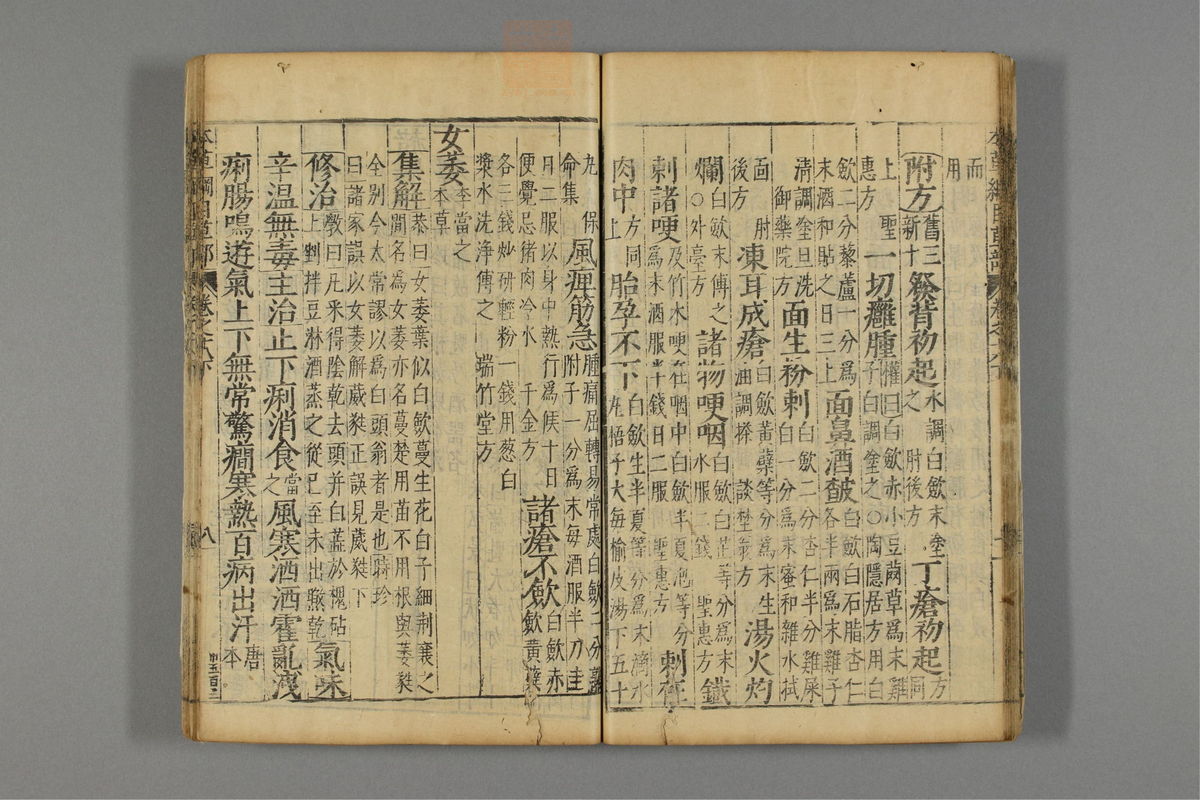 而用
附方舊三新十發背初起水調白斂末塗之肘後方丁瘡初起方同
上聖惠方一切癰腫權曰白斂赤小豆䒷草爲末雞子白調塗之○陶隱居方用白
斂二分藜蘆一分爲末酒和貼之日三上面鼻酒皶白斂白石脂杏仁各半兩爲末雞子
清調塗旦洗御藥院方面生粉刺白斂二分杏仁半分雞屎白一分爲末蜜和雜水拭
面肘後方凍耳成瘡白斂黃蘗等分爲末生油調搽談埜翁方湯火灼
爛白斂末傅之○外臺方諸物哽咽白斂白芷等分爲末水服二錢聖惠方鐵
刺諸哽及竹木哽在咽中白斂半夏泡等分爲末酒服半錢日二服聖惠方刺在
肉中方同上胎孕不下白斂生半夏等分爲末滴水丸梧子大每榆皮湯下五十
丸保命集風痺筋急腫痛屈轉易常處白斂二分熟附子一分爲末每酒服半刀圭
日二服以身中熱行爲候十日便覺忌猪肉冷水千金方諸瘡不斂白斂赤斂黃蘗
各三錢炒研輕粉一錢用葱白漿水洗淨傅之瑞竹堂方
女萎李當之本草
集解恭曰女萎葉似白斂蔓生花白子細荆襄之間名爲女萎亦名蔓楚用苗不用根與萎蕤
全別今太常謬以爲白頭翁者是也時珍曰諸家誤以女萎解葳蕤正誤見葳蕤下
修治斆曰凡采得陰乾去頭并白蕋於槐砧上剉拌豆淋酒蒸之從巳至未出晒乾氣味
辛溫無毒主治止下痢消食當之風寒洒洒霍亂洩
痢腸鳴遊氣上下無常驚癇寒熱百病出汗唐本
本草綱目草部 卷之十八下 八